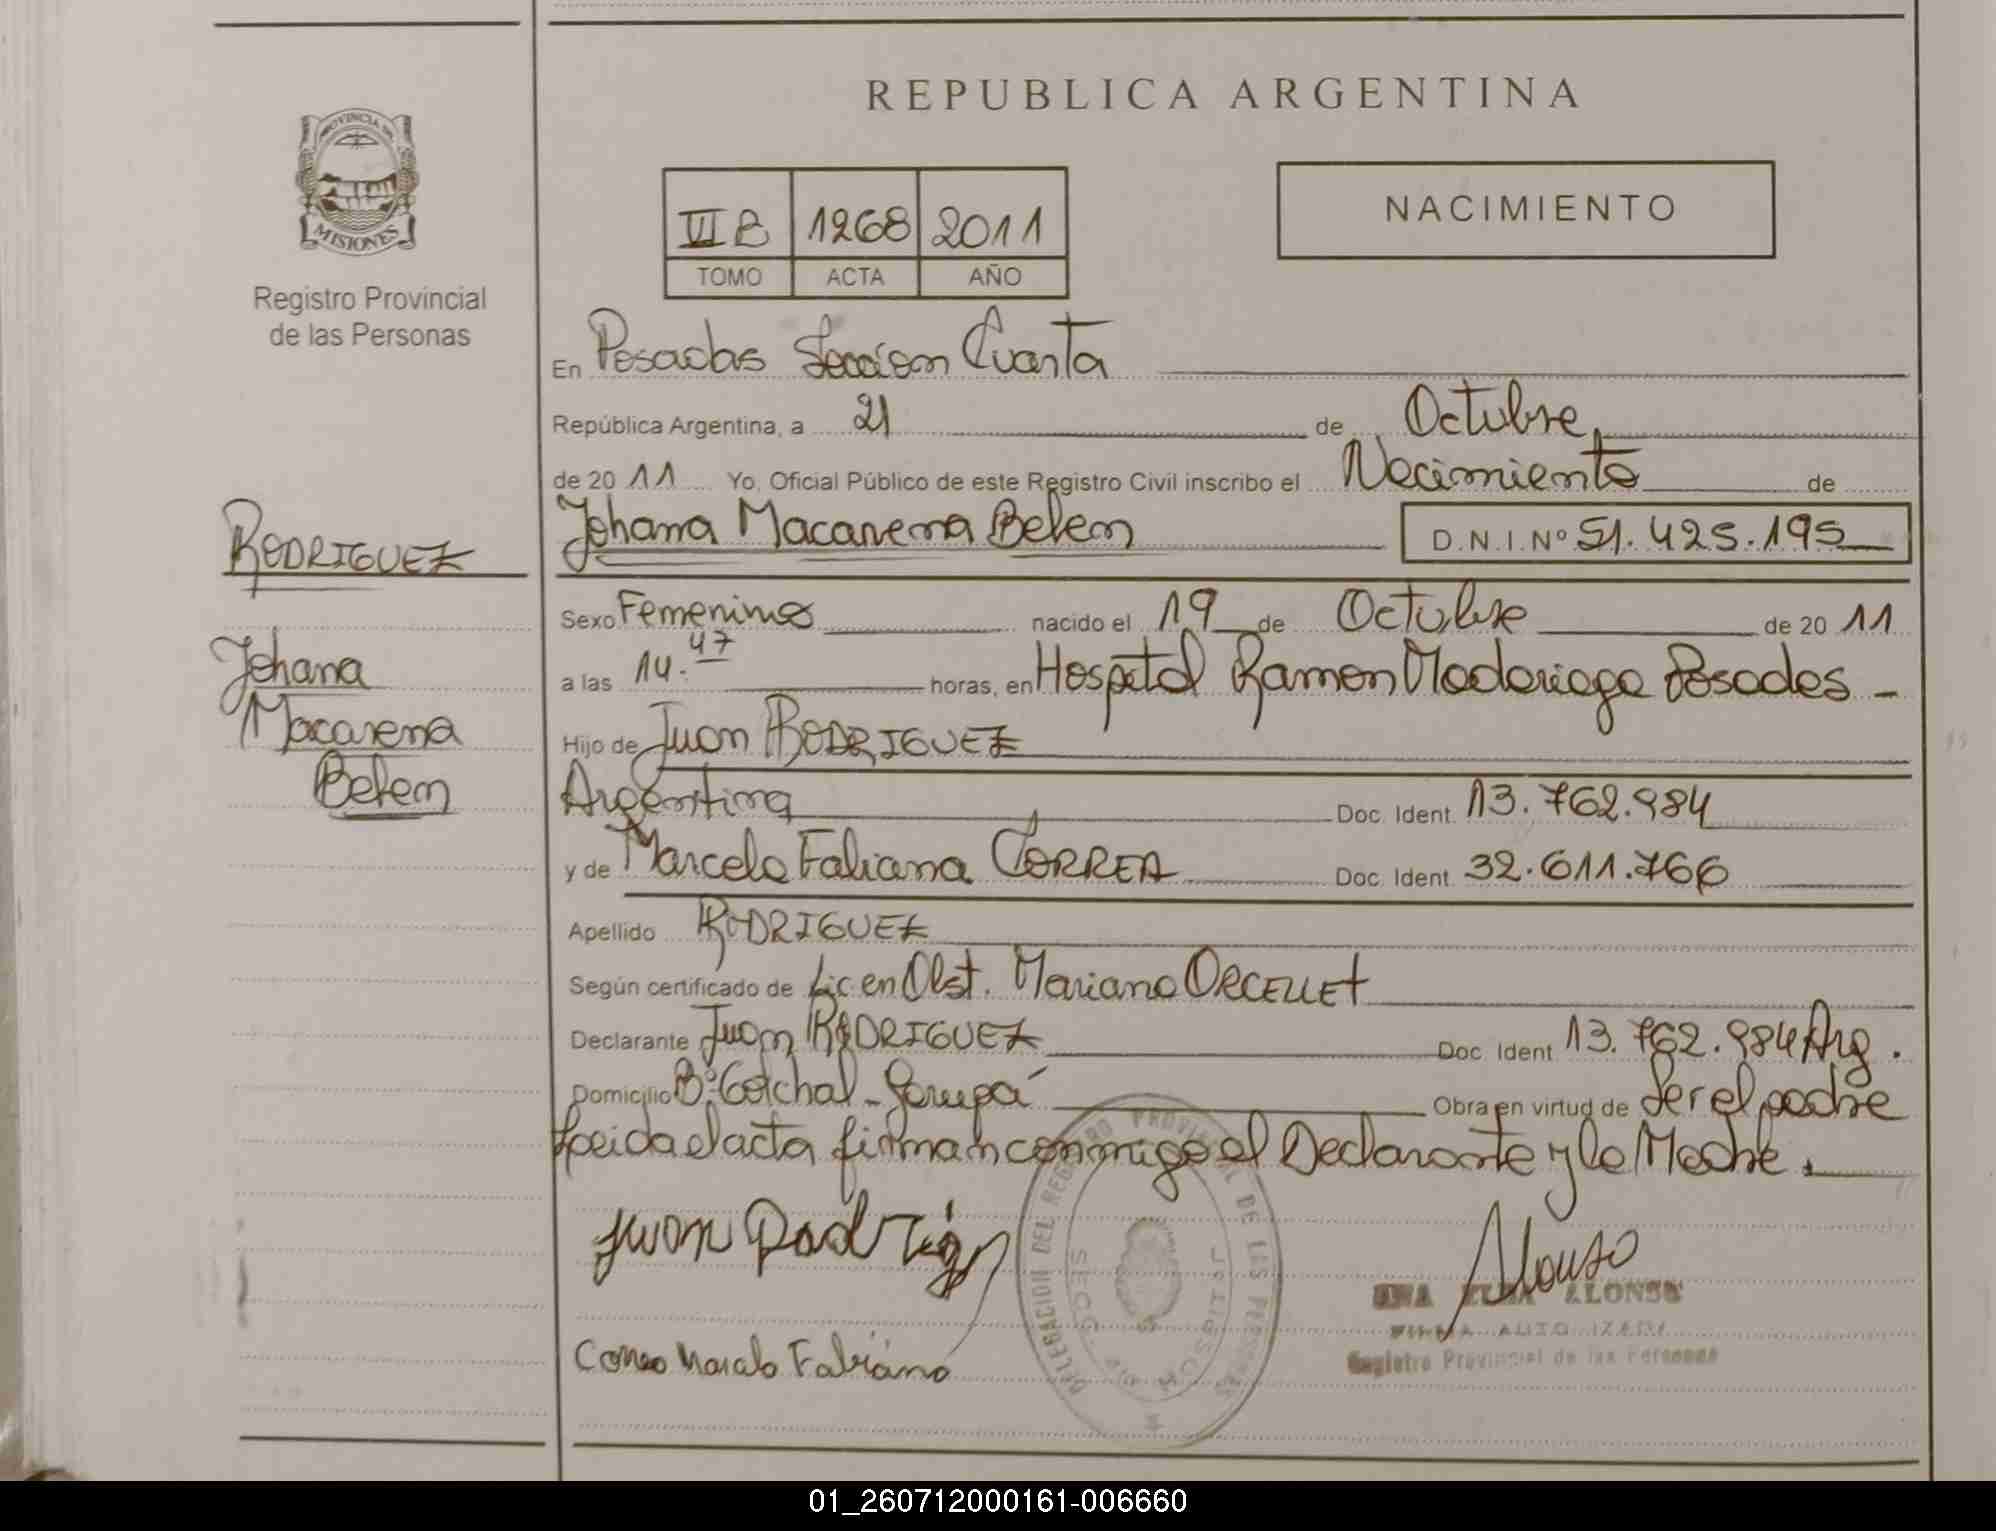 REPUBLICA ARGENTINA
PROVINCIA DE
MISIONES
Registro Provincial
de las Personas
VII B 1268 2011
TOMO ACTA AÑO
NACIMIENTO
En Posadas Seccion Cuarta
República Argentina, a 21 de Octubre
de 2011 Yo, Oficial Público de este Registro Civil inscribo el Nacimiento de
Johana Macarena Belen D.N.I. Nº 51.425.195
RODRIGUEZ
Johana
Macarena
Belen
Sexo Femenino nacido el 19 de Octubre de 2011
a las 14.47 horas, en Hospital Ramon Madariaga Posadas -
Hijo de Juan RODRIGUEZ
Argentina Doc. Ident. 13.762.984
y de Marcela Fabiana CORREA Doc. Ident. 32.611.766
Apellido RODRIGUEZ
Según certificado de Lic en Obst. Mariana ORCELLET
Declarante Juan RODRIGUEZ Doc. Ident. 13.762.984 Arg.
Domicilio Bº Garupá Obra en virtud de Ser el padre
Leida el acta firman conmigo el Declarante y la Madre.
Juan Rodrig
Alonso
ALONSO
Registro Provincial de las Personas
Correa Marcela Fabiana
DELEGACION DEL REGISTRO PROVINCIAL DE LAS PERSONAS
SECC HOSPITAL
01_260712000161-006660